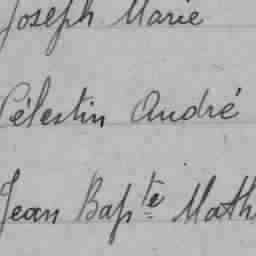 Joseph Marie
Célestin André
Jean Bapte Math